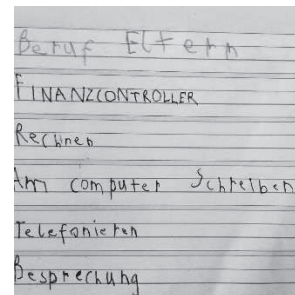 Beruf Eltern
FINANZCONTROLLER
Rechnen
Am computer Schreiben
Telefonieren
Besprechung